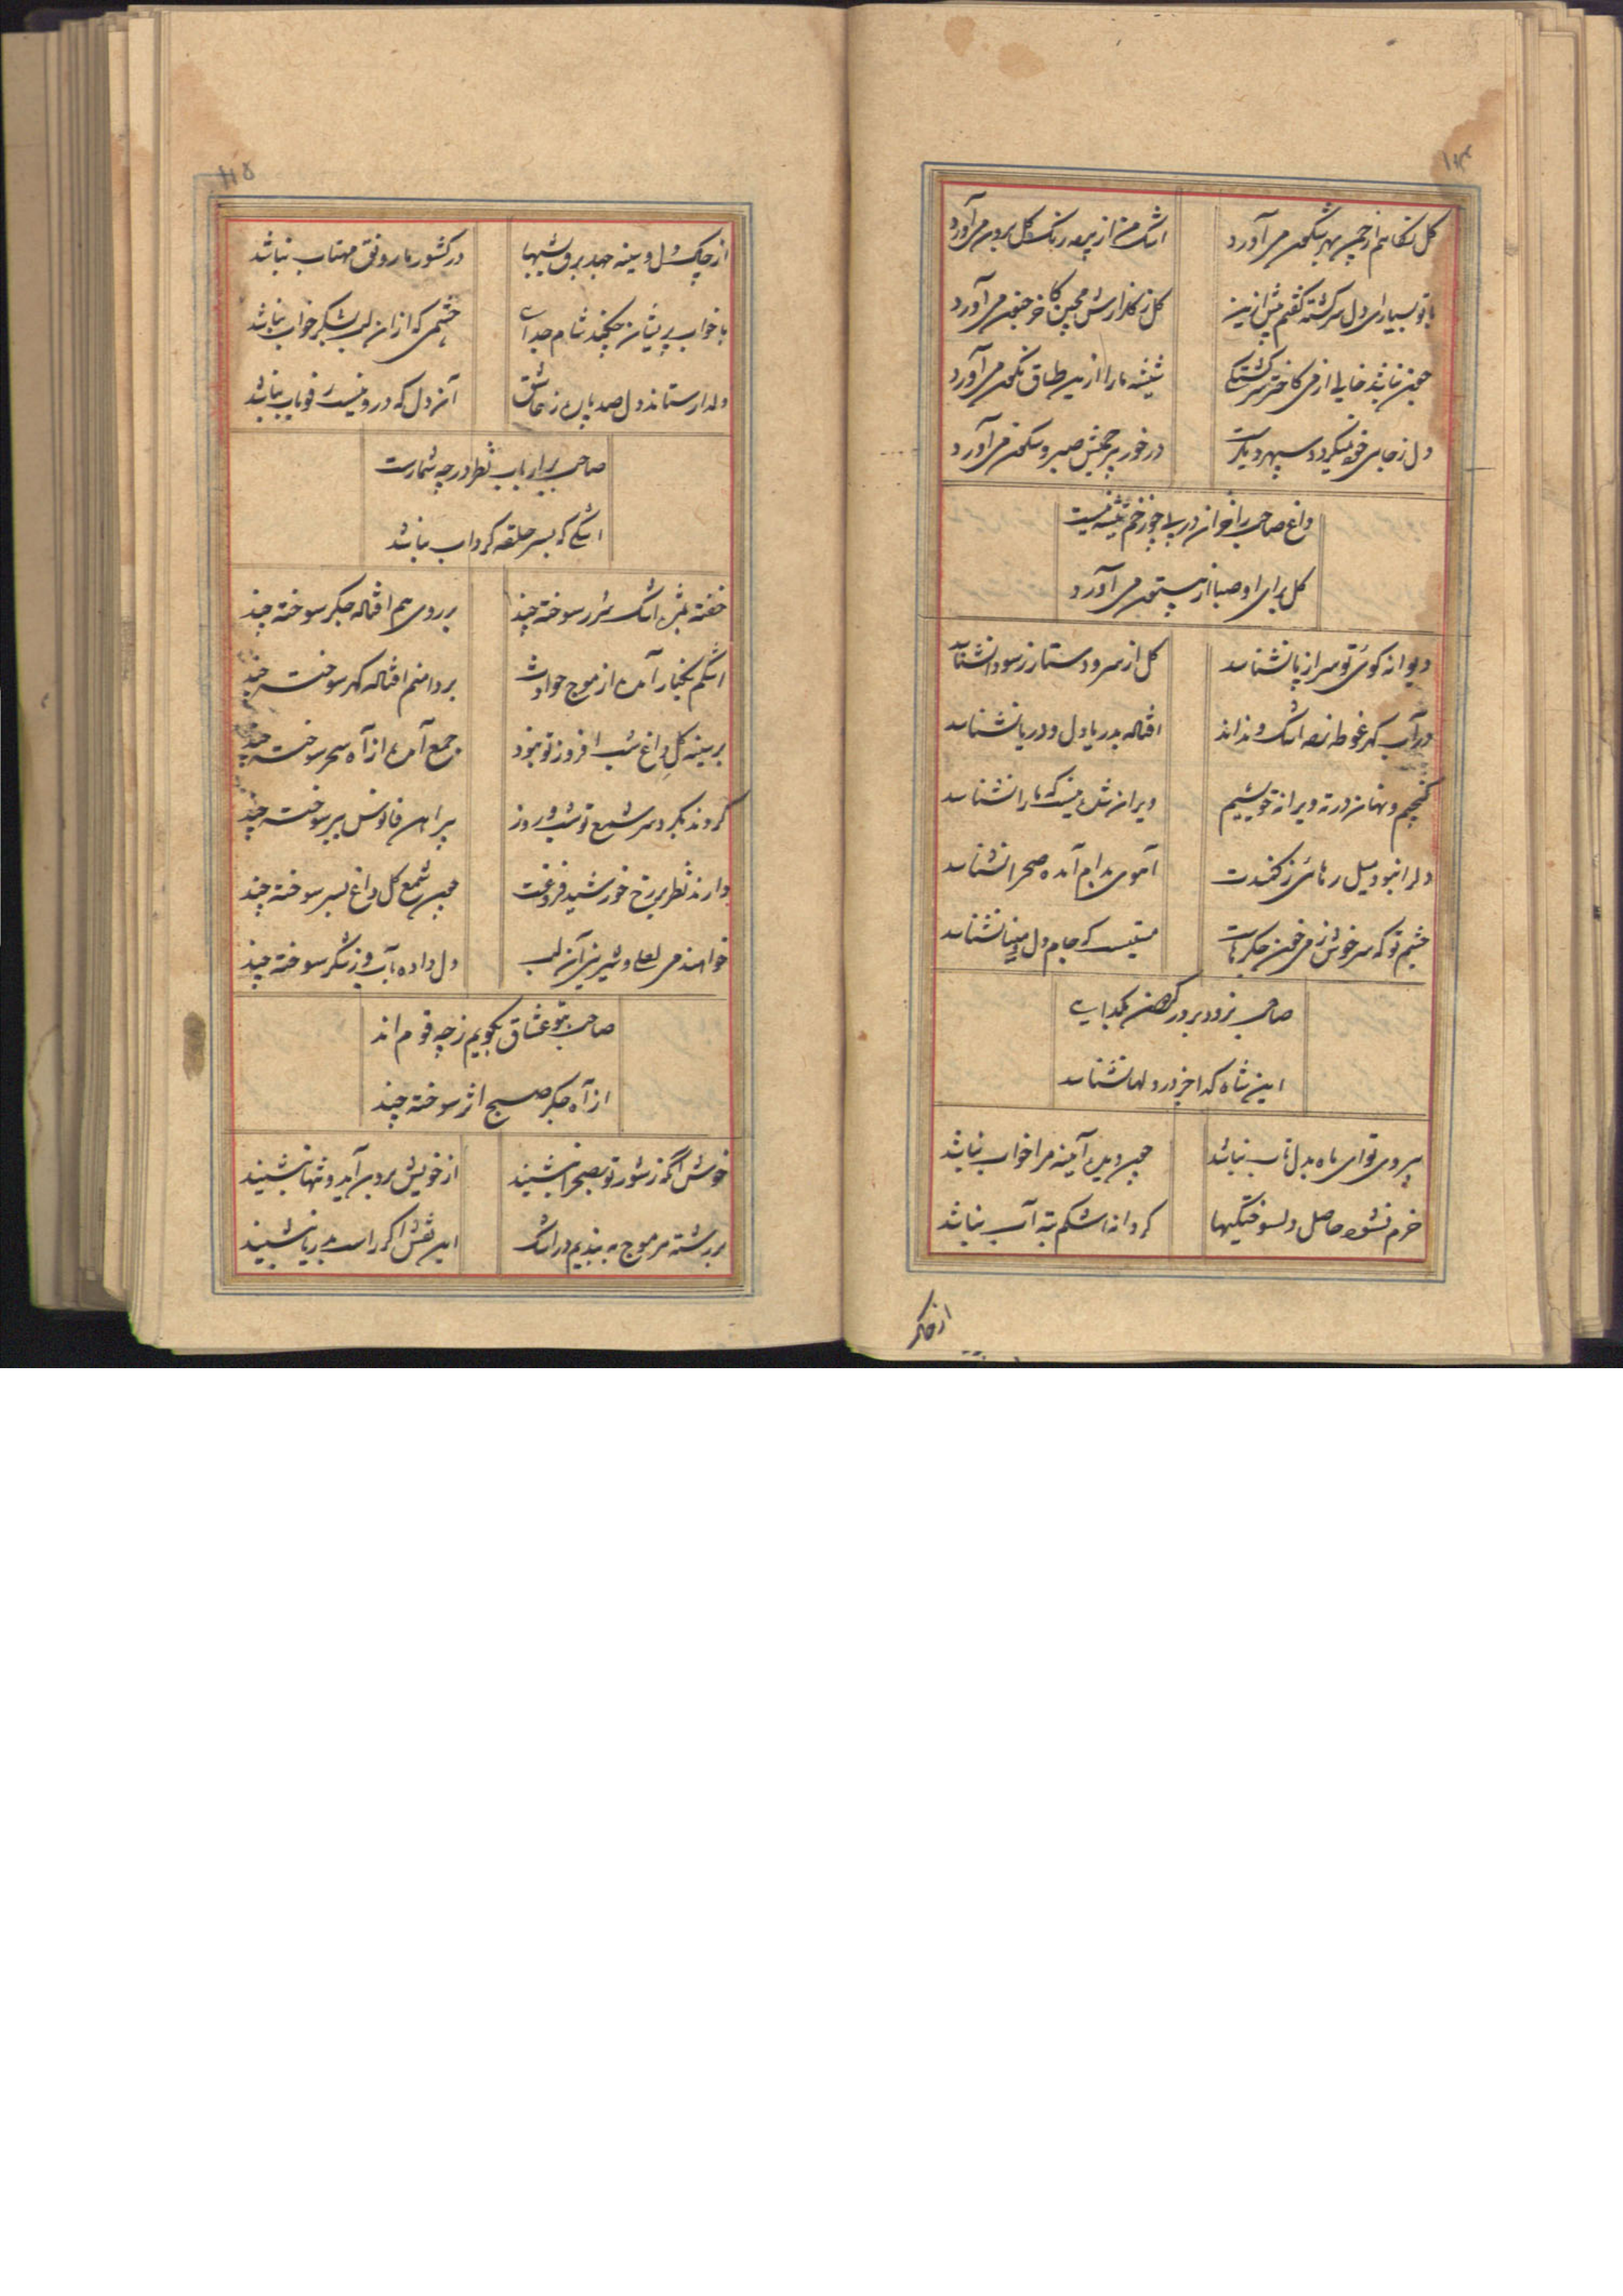 کل نکاهم از چمن بهر شکون می آورد
اشک من از پرده رنک کل برون می آورد
با تو بسیار ای دل سرکشته کفتم پیش ازین
کل ز کلزارش مچین کاخر جنون می آورد
چون نباشد خالی از می کاختر سرکشتکی
شیشه ما را ازین طاق نکون می آورد
دل ز جای خود نمیکردد سپهر دیکرست
در خور پر جنبش صبر و سکون می آورد
داغ صاحب را خزان در پی چو زخم تیشه نیست
کل برای او صبا از بیستون می آورد
دیوانه کوی تو سر از پا نشناسد
کل از سر و دستار ز سودا نشناسد
در آب کهر غوطه زده اشک و نداند
افتاله بدریا دل و دریا نشناسد
کنجیم و نهان در ته ویرانه خویشیم
ویران شده نیست که ما را نشناسد
دلرا نبود میل رهائی ز کمندت
آهوی بدام آمده صحرا نشناسد
چشم تو که سرخوش ز می خون جکرهاست
مستیست که جام دل و مینا نشناسد
صاحب نرود بر در کس بکدایی
این شاه کدا جز در دلها نشناسد
بیروی تو ای ماه بدل تاب نباشد
چون دیده آئینه مرا خواب نباشد
خرم نشود حاصل دلسوختکیها
کر دانه اشکم بته آب نباشد
از چاک
۱۱۵
از چاک دل و سینه جهد برق بشبها
در کشور ما رونق مهتاب نباشد
با خواب پریشان چکند شام جدایی
چشمی که ازان لب بشکر خواب نباشد
دلدار ستاند دل صد پاره ز عاشق
آن دل که درو نیست رفو باب نباشد
صاحب بر ارباب نظر در چه شمارست
اشکی که بسر حلقه کرداب نباشد
خفته بمژه اشک شرر سوخته چند
بر روی هم افتاله جکر سوخته چند
اشکم بکنار آمده از موج حوادث
بر دامنم افتاله کهر سوخته چند
بر سینه کل داغ شب افروز تو نبود
جمع آمده از آه سحر سوخته چند
کردند بکرد سر شمع تو شب و روز
پیراهن فانوس ببر سوخته چند
دارند نظر بر رخ خورشید فروغت
چون شمع کل داغ بسر سوخته چند
خواهند می لعلی و شیرینی آن لب
دل داده بآب و ز شکر سوخته چند
صاحب بتو عشاق بکویم ز چه قوم اند
از آه جکر صبح اثر سوخته چند
خوش آنکه ز شور تو بصحرا بنشیند
از خویش برون آید و تنها بنشیند
بر رشته هر موج به بندیم در اشک
این نقش اکر راست بدریا بنشیند